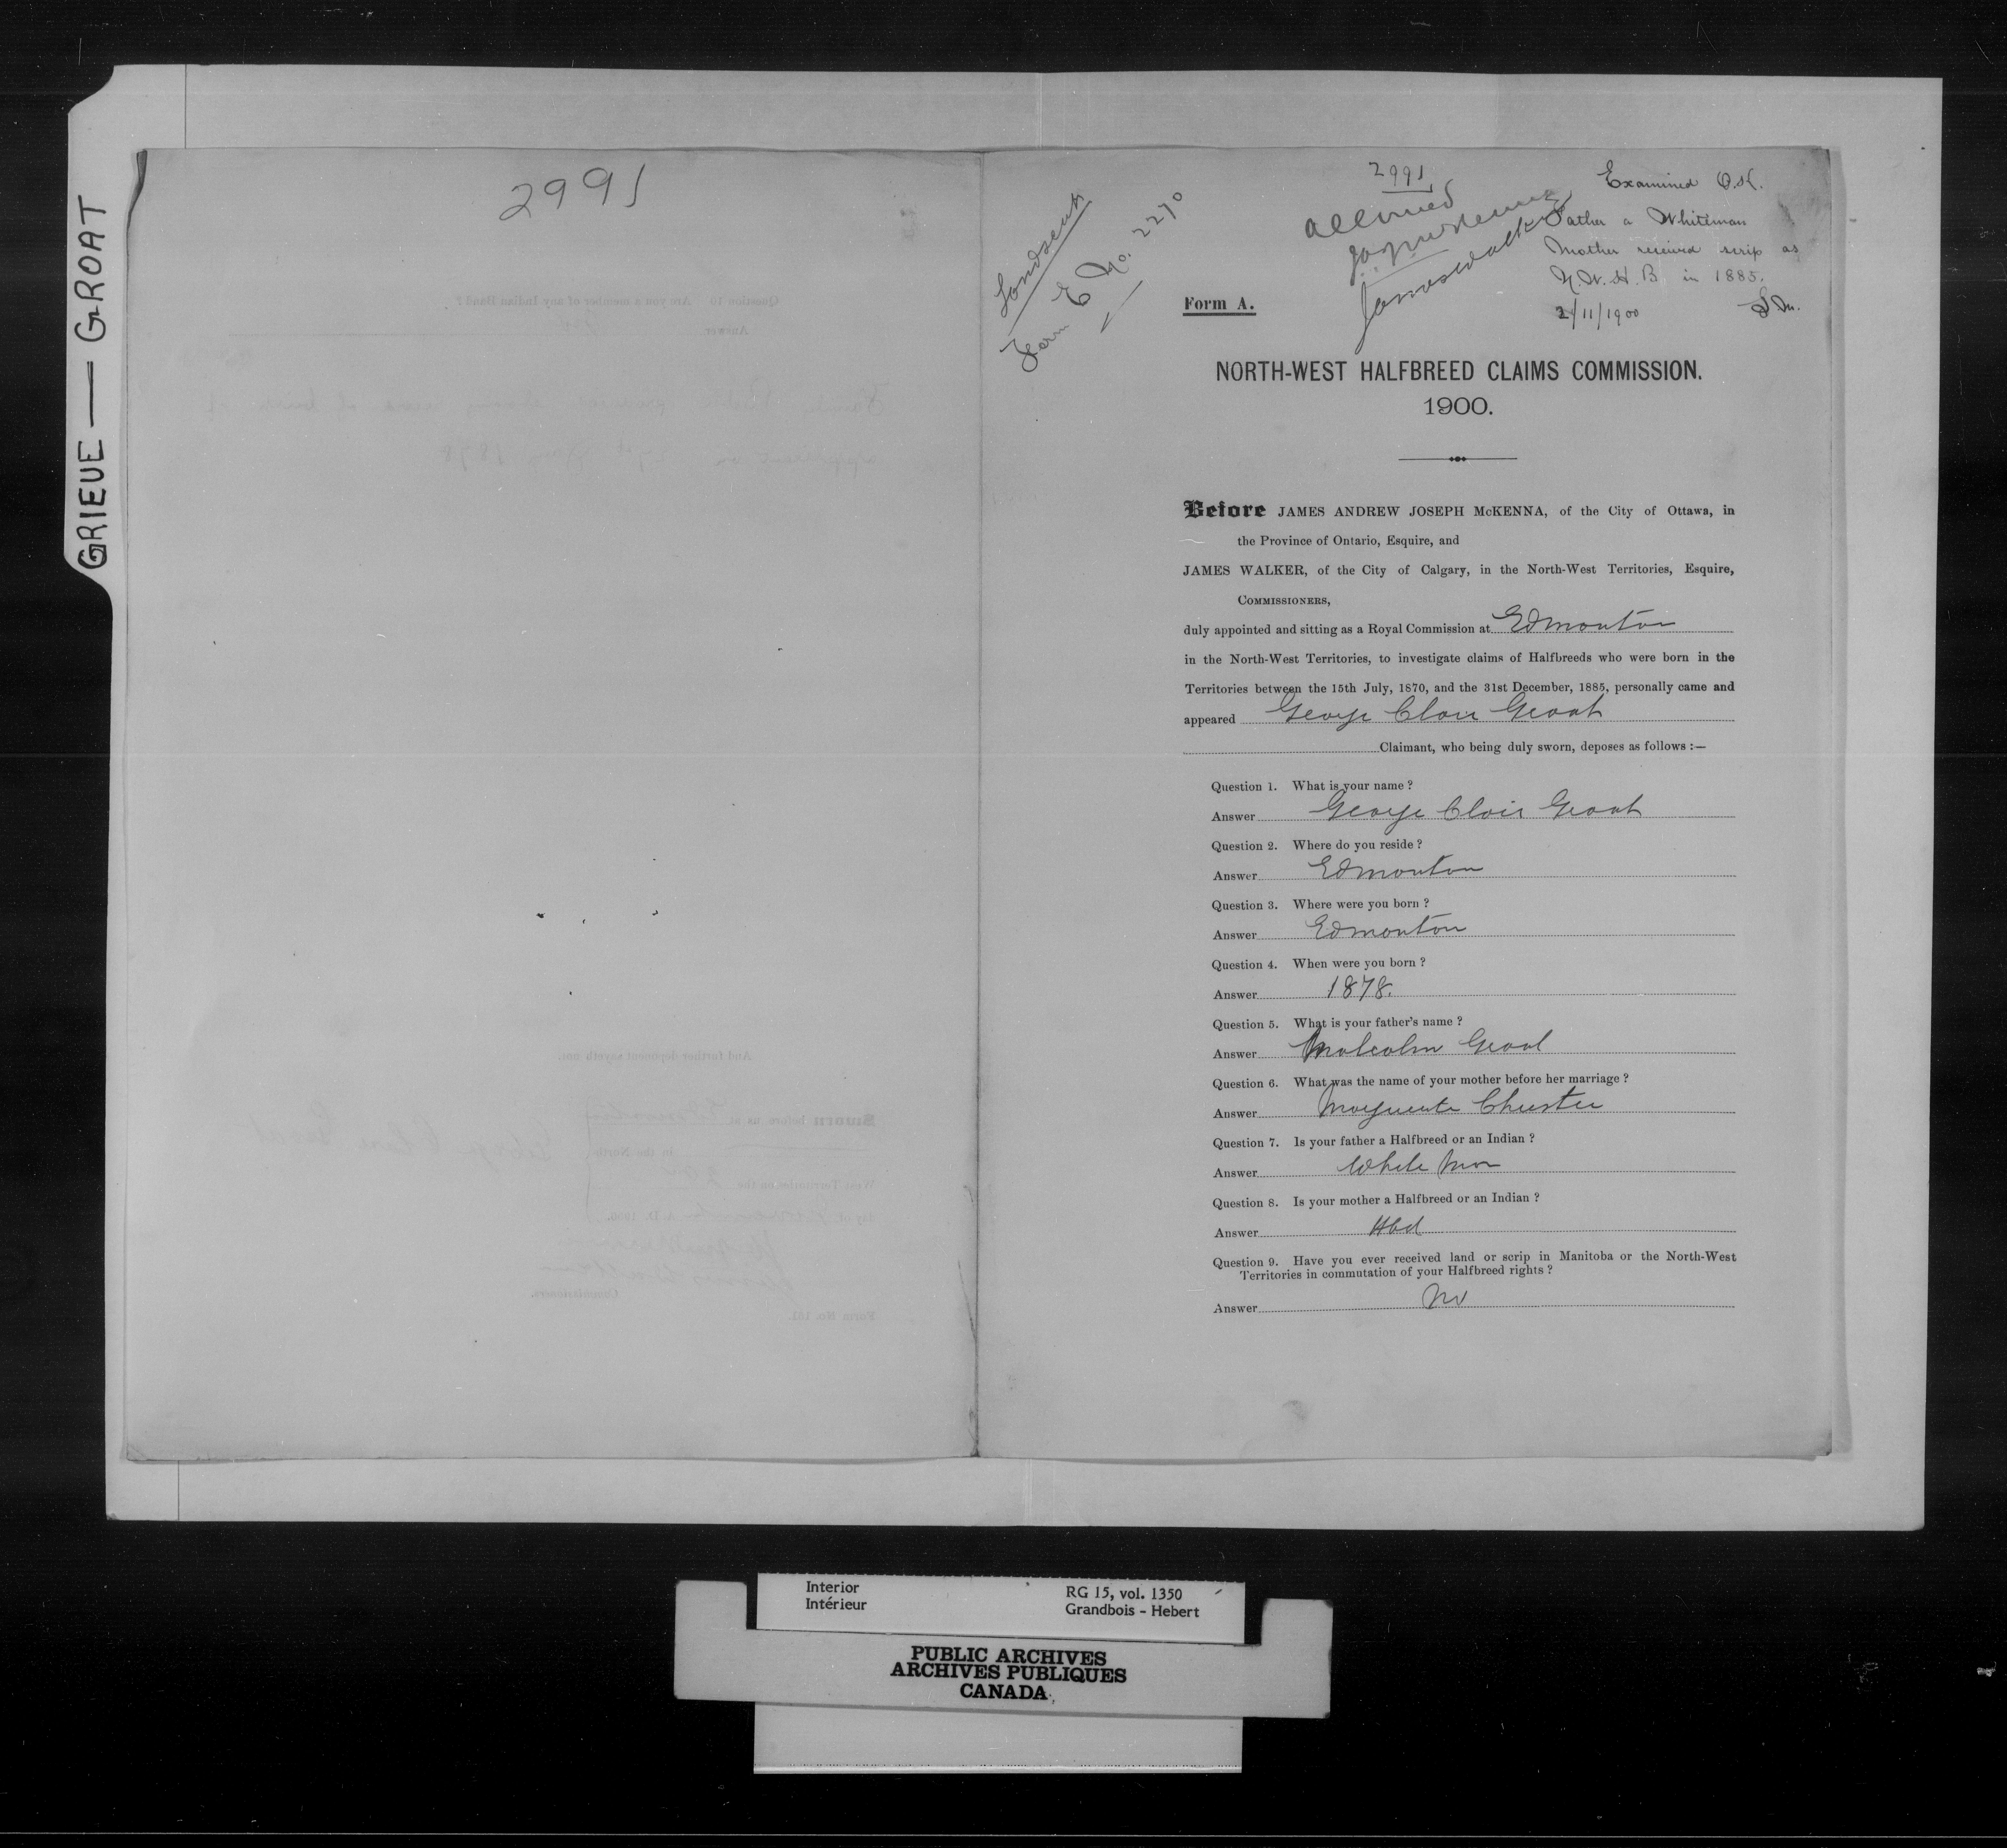 GRIEVE — GROAT
2991
2991
Examined O.K.
Father a Whiteman
Mother received scrip as
N.W.H.B in 1885.
2/11/1900
allowed
JamesWalker
Landscrip
Form E No. 2270
Form A.
NORTH-WEST HALFBREED CLAIMS COMMISSION.
1900.
Before JAMES ANDREW JOSEPH McKENNA, of the City of Ottawa, in
the Province of Ontario, Esquire, and
JAMES WALKER, of the City of Calgary, in the North-West Territories, Esquire,
COMMISSIONERS,
duly appointed and sitting as a Royal Commission at Edmonton
in the North-West Territories, to investigate claims of Halfbreeds who were born in the
Territories between the 15th July, 1870, and the 31st December, 1885, personally came and
appeared George Clair Groat
Claimant, who being duly sworn, deposes as follows :—
Question 1. What is your name ?
Answer George Clair Groat
Question 2. Where do you reside ?
Answer Edmonton
Question 3. Where were you born ?
Answer Edmonton
Question 4. When were you born ?
Answer 1878.
Question 5. What is your father's name ?
Answer Malcolm Groat
Question 6. What was the name of your mother before her marriage ?
Answer Marguerite Christie
Question 7. Is your father a Halfbreed or an Indian ?
Answer White Man
Question 8. Is your mother a Halfbreed or an Indian ?
Answer Hbd
Question 9. Have you ever received land or scrip in Manitoba or the North-West
Territories in commutation of your Halfbreed rights ?
Answer No
Interior
Intérieur
RG 15, vol. 1350
Grandbois - Hebert
PUBLIC ARCHIVES
ARCHIVES PUBLIQUES
CANADA